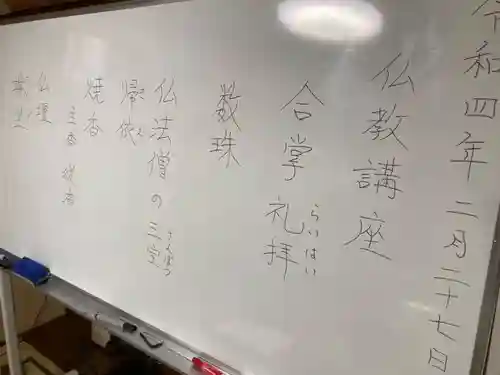 令和四年二月二十七日
仏教講座
合掌礼拝
らいはい
数珠
仏法僧の三宝
さんぽう
帰依
え
焼香
主香 従香
仏壇